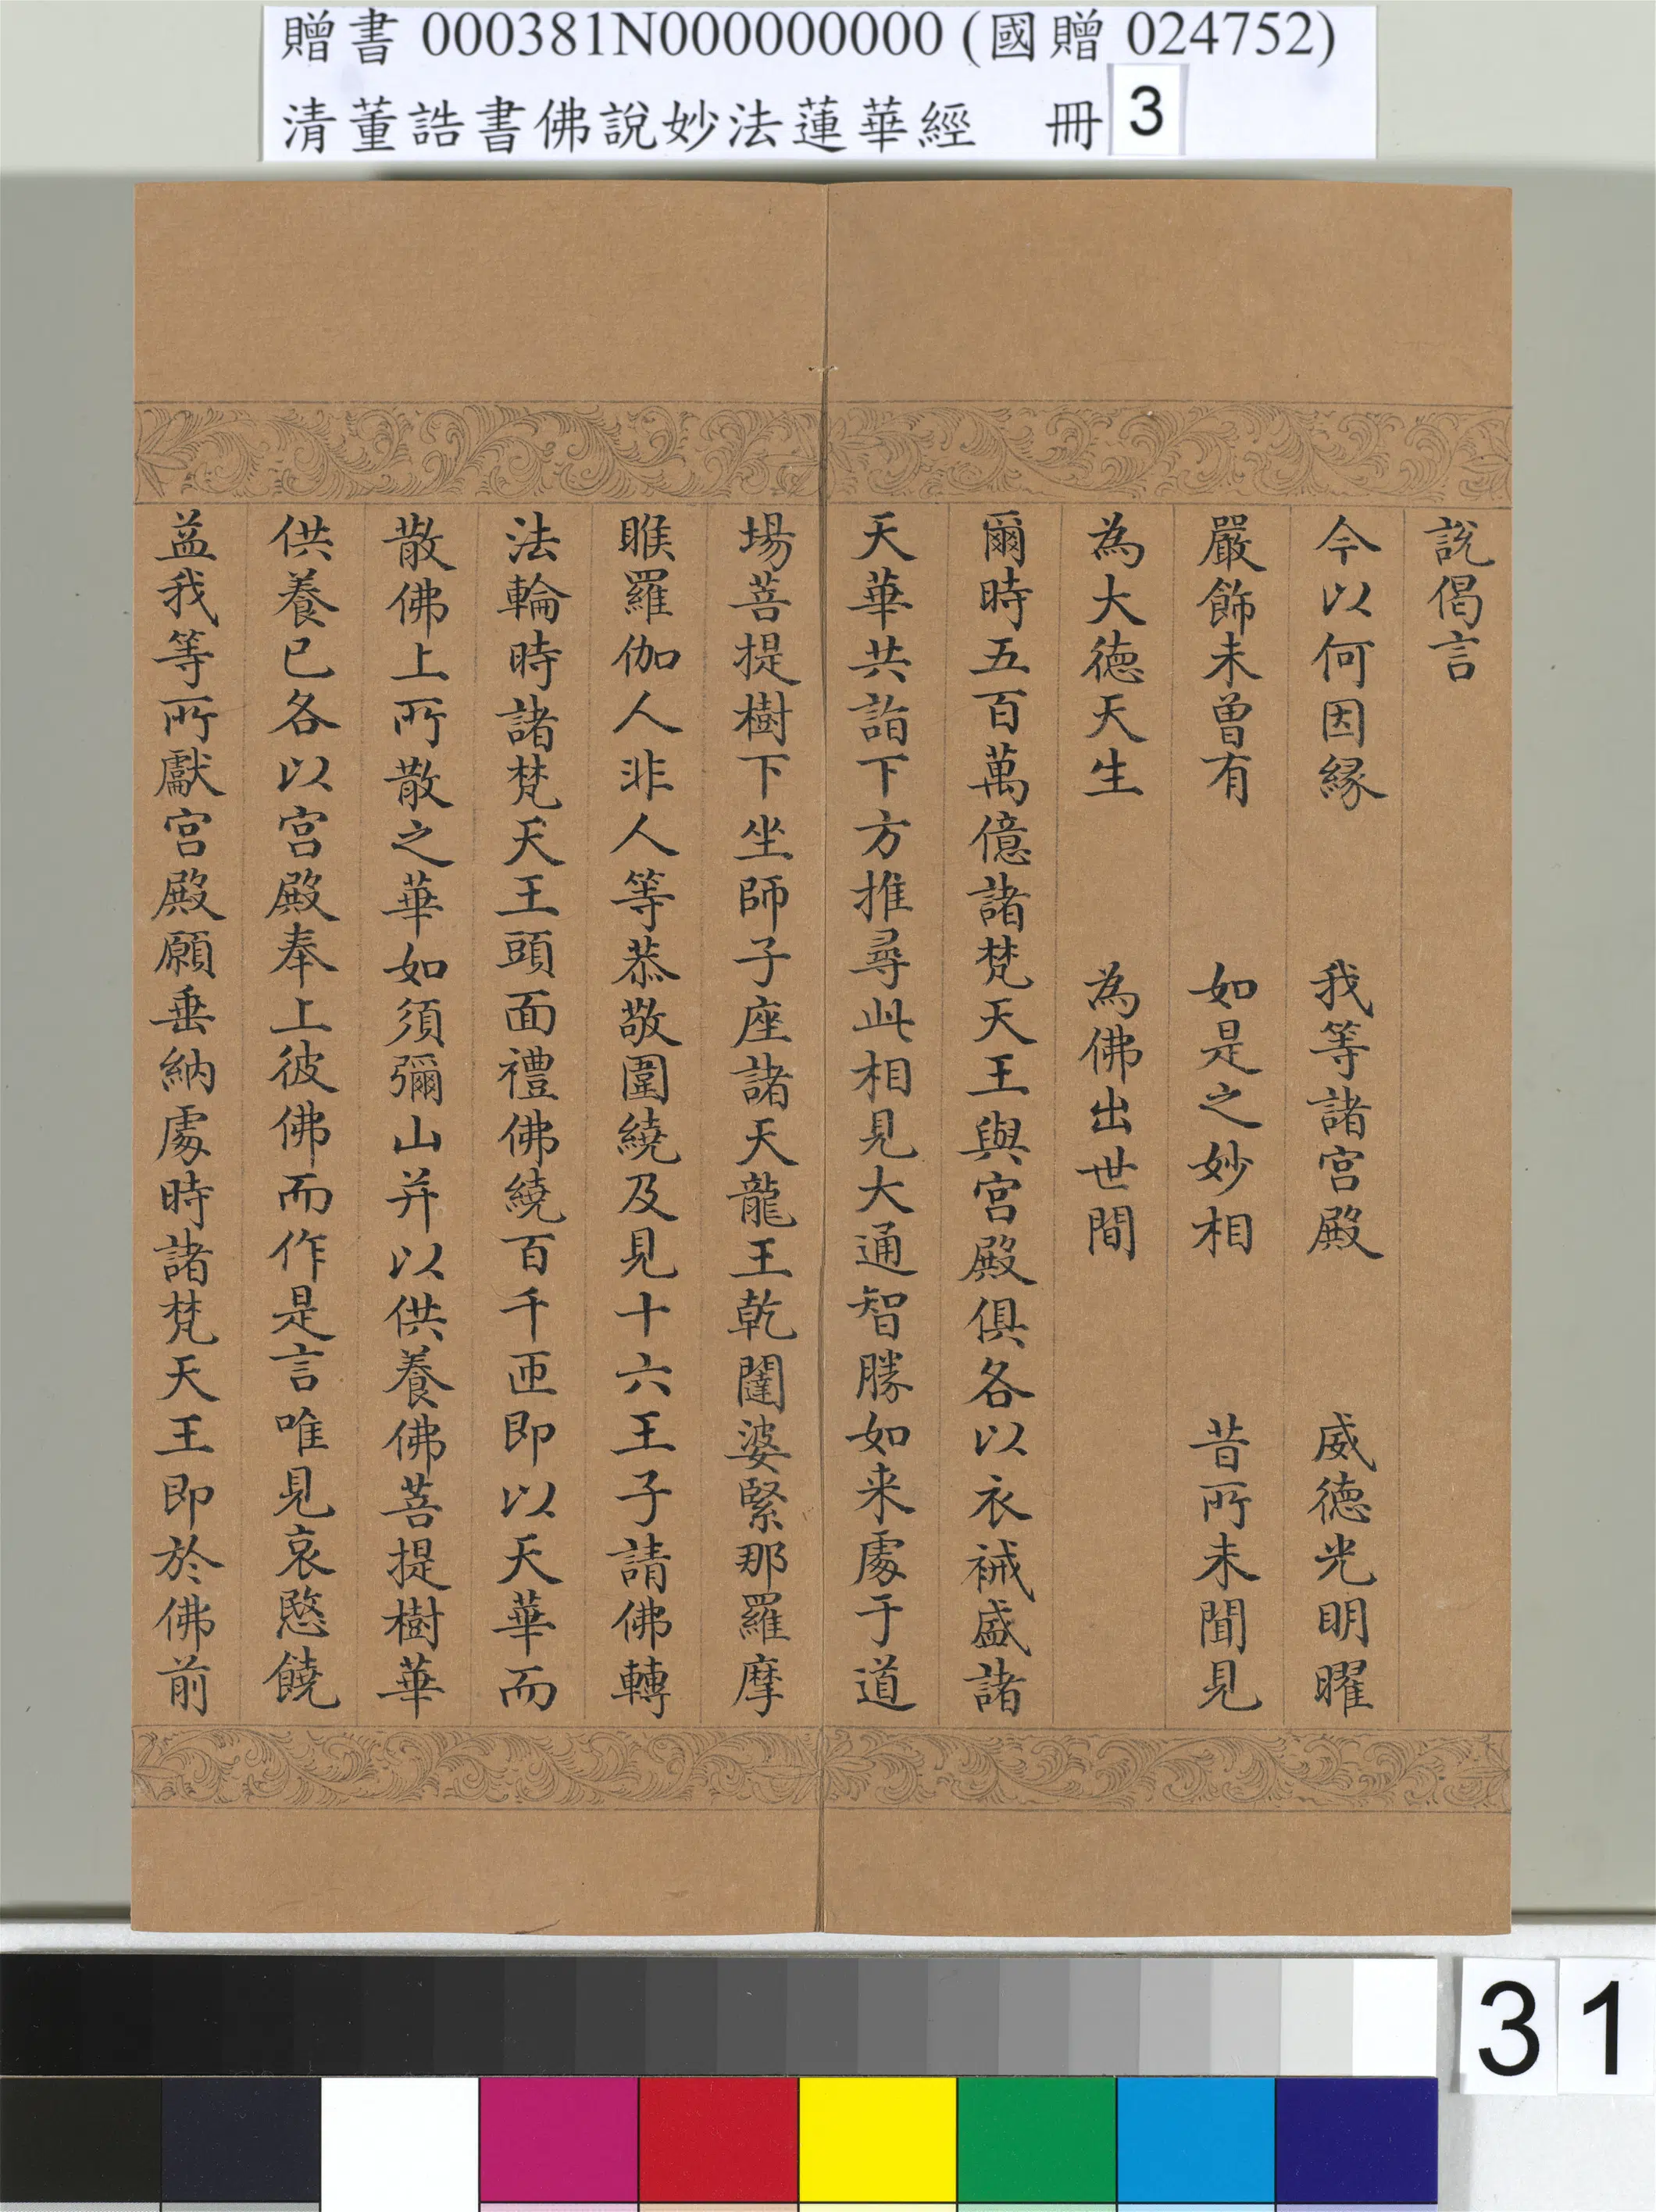 贈書 000381N000000000 (國贈 024752)
清董誥書佛說妙法蓮華經 冊 3
說偈言
今以何因緣 我等諸宫殿 威德光明曜
嚴飾未曾有 如是之妙相 昔所未聞見
為大德天生 為佛出世間
爾時五百萬億諸梵天王與宫殿俱各以衣祴盛諸
天華共詣下方推尋此相見大通智勝如来處于道
場菩提樹下坐師子座諸天龍王乾闥婆緊那羅摩
睺羅伽人非人等恭敬圍繞及見十六王子請佛轉
法輪時諸梵天王頭面禮佛繞百千匝即以天華而
散佛上所散之華如須彌山并以供養佛菩提樹華
供養已各以宫殿奉上彼佛而作是言唯見哀愍饒
益我等所獻宫殿願垂納處時諸梵天王即於佛前
31